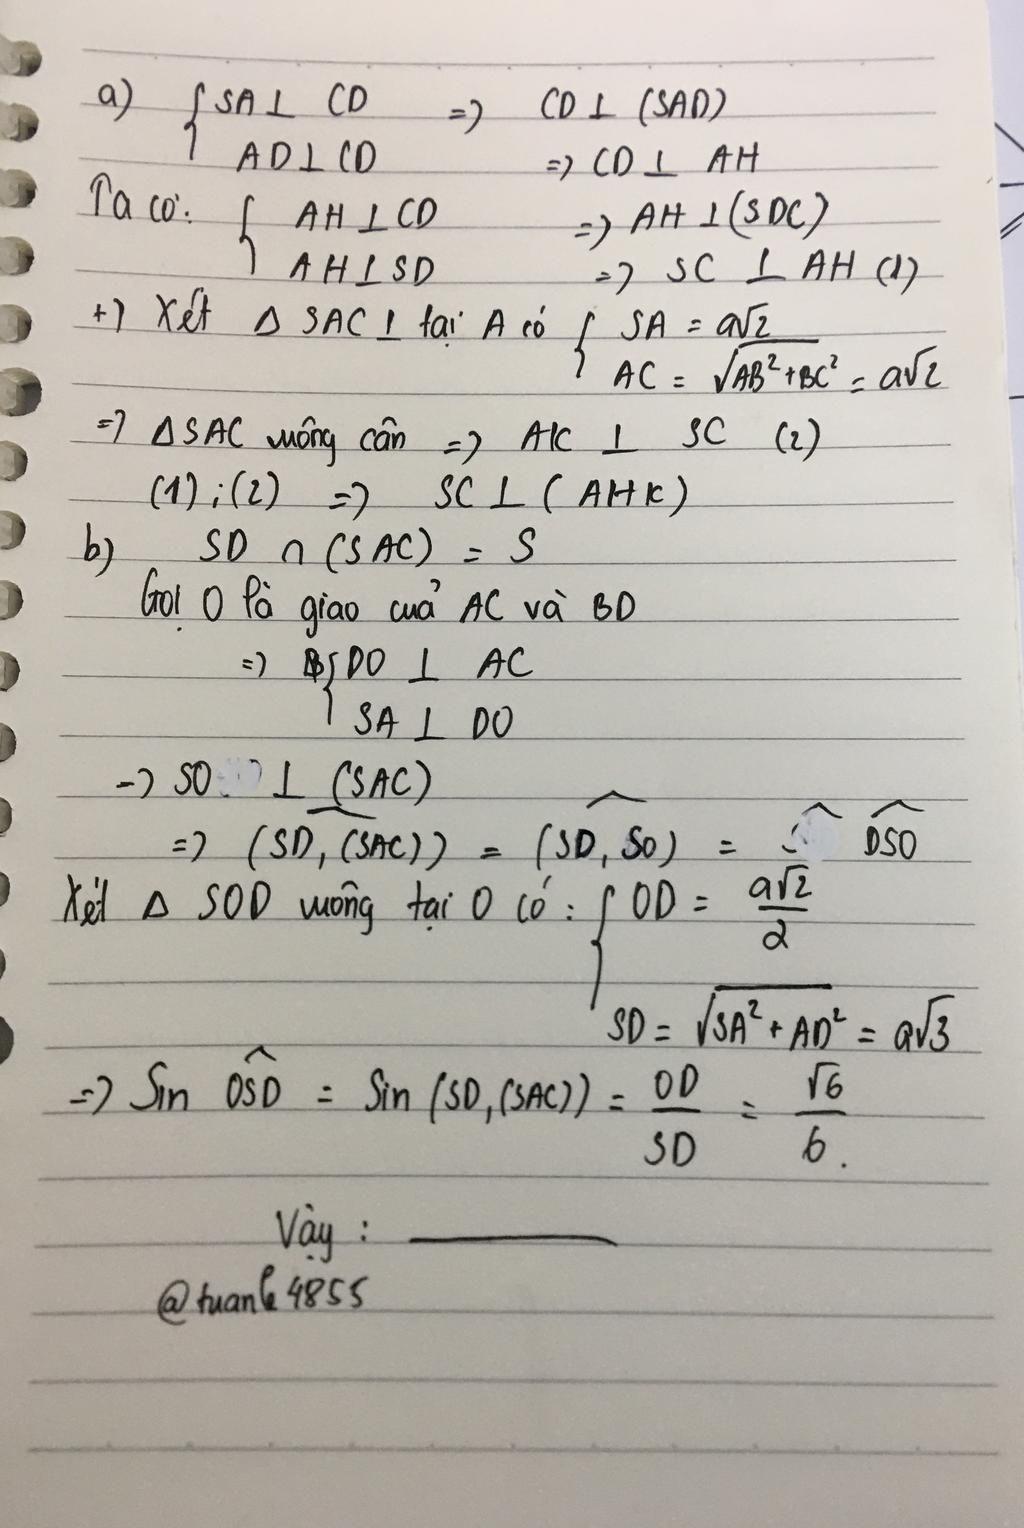 a) { SA ⊥ CD => CD ⊥ (SAD)
AD ⊥ CD => CD ⊥ AH
Ta có: { AH ⊥ CD => AH ⊥ (SDC)
AH ⊥ SD => SC ⊥ AH (1)
+) Xét Δ SAC ⊥ tại A có { SA = a√2
AC = √AB² + BC² = a√2
=> Δ SAC vuông cân => AK ⊥ SC (2)
(1) ; (2) => SC ⊥ (AHK)
b) SD ∩ (SAC) = S
Gọi O là giao cuả AC và BD
=> { DO ⊥ AC
SA ⊥ DO
-> SO ⊥ (SAC)
=> (SD, (SAC)) = (SD, SO) = DSO
Xét Δ SOD vuông tại O có : { OD = a√2/2
SD = √SA² + AD² = a√3
=> Sin OSD = Sin (SD, (SAC)) = OD/SD = √6/6.
Vậy :